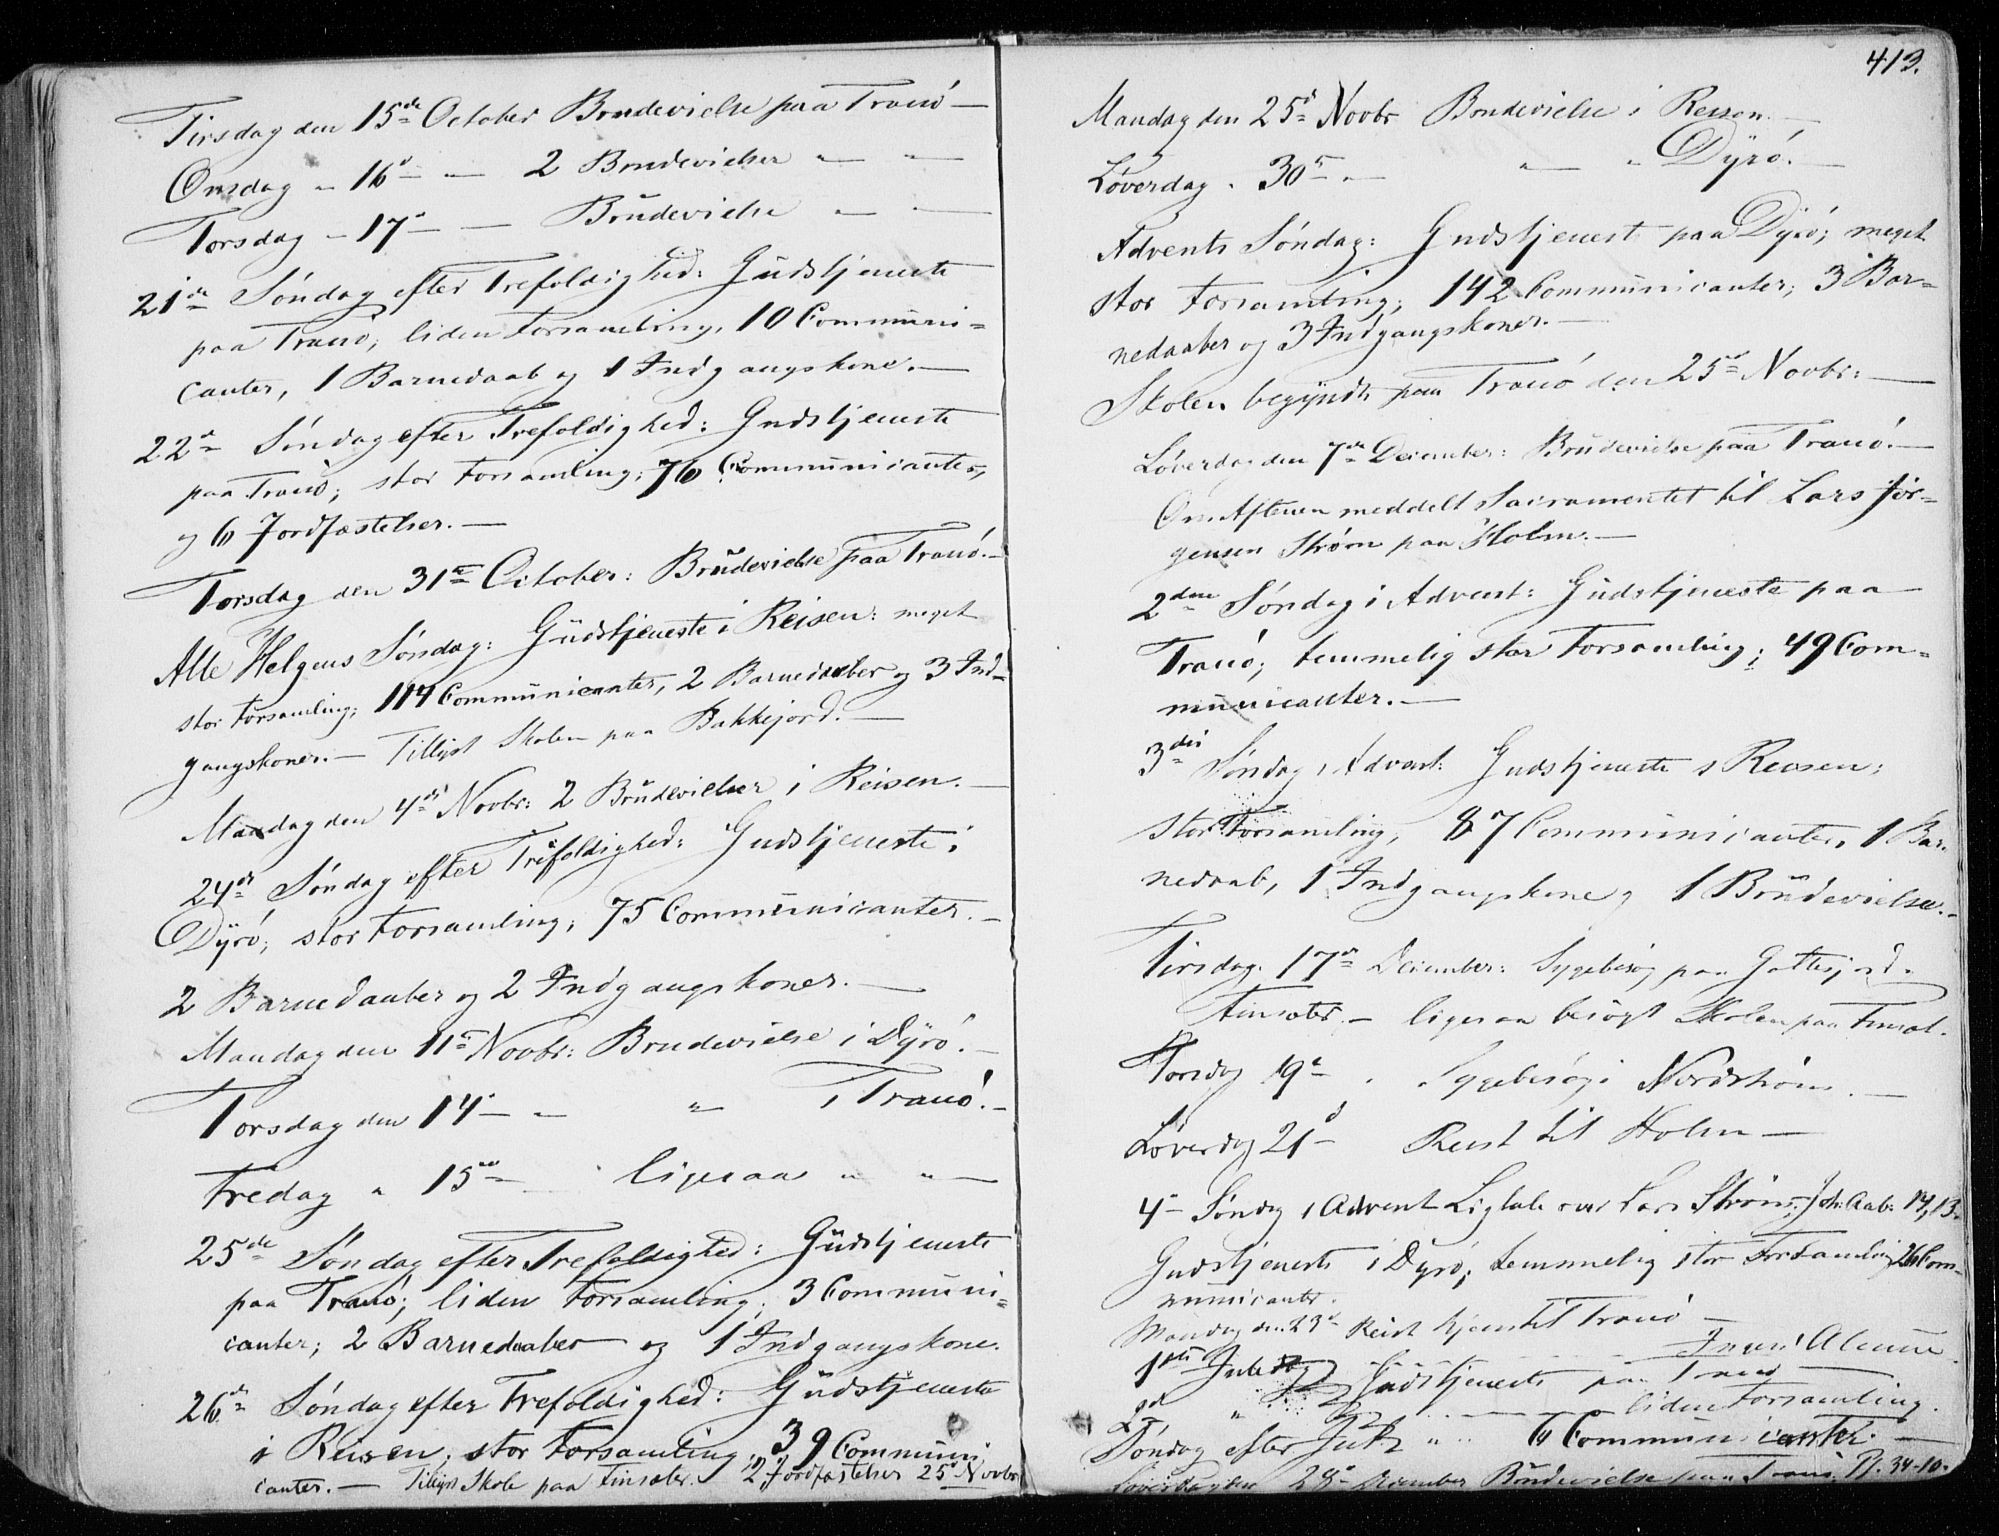 Tirsdag den 15de October Brudevielse paa Tranö —
Onsdag „ 16d — „ 2 Brudevielser „ — „ —
Torsdag „ 17d — — Brudevielse „ — „ —
21de Söndag efter Trefoldighed: Gudstjeneste
paa Tranö; liden Forsamling, 10 Communi=
canter, 1 Barnedaab og 1 Indgangskone. —
22de Söndag efter Trefoldighed: Gudstjeneste
paa Tranö; stor Forsamling; 76 Communicanter,
og 6 Jordfæstelser. —
Torsdag den 31te October: Brudevielse paa Tranö. —
Alle Helgens Söndag: Gudstjeneste i Reisen: meget
stor Forsamling; 114 Communicanter, 2 Barnedaaber og 3 Ind=
gangskoner. — Tillyst Skolen paa Bakkejord. —
Mandag den 4de Novbr: 2 Brudevielser i Reisen. —
24de Söndag efter Trefoldighed: Gudstjeneste i
Dyrö; stor Forsamling; 75 Communicanter. —
2 Barnedaaber og 2 Indgangskoner. —
Mandag den 11te Novbr: Brudevielse i Dyrö. —
Torsdag den 14d — „ „ i Tranö. —
Fredag „ 15de — ligesaa „ „ —
25de Söndag efter Trefoldighed: Gudstjeneste
paa Tranö; liden Forsamling; 3 Communi=
canter; 2 Barnedaaber og 1 Indgangskone.
26de Söndag efter Trefoldighed: Gudstjeneste
i Reisen; stor Forsamling; 39 Communi
canter. — Tillyst Skole paa Finsæter. 2 Jordfæstelser 25d Novbr
413.
Mandag den 25d Novbr Brudevielse i Reisen. —
Löverdag „ 30te „ — „ — „ Dyrö. —
Advents Söndag: Gudstjenest paa Dyrö; meget
stor Forsamling; 142 Communicanter; 3 Bar=
nedaaber og 3 Indgangskoner. —
Skolen begyndt paa Tranö den 25de Novbr: —
Löverdag den 7de December: Brudevielse paa Tranö. —
Om Aftenen meddelt Sacramentet til Lars Jör=
gensen Ström paa Holm. —
2den Söndag i Advent: Gudstjeneste paa
Tranö; temmelig stor Forsamling; 49 Com=
municanter. —
3die Söndag i Advent: Gudstjeneste i Reisen;
stor Forsamling, 87 Communicanter, 1 Bar=
nedaab, 1 Indgangskone og 1 Brudevielse. —
Tirsdag 17de December: Sygebesög paa
Finsæter — ligesaa besögt Skolen paa Finsæt.
Torsdag 19d „ Sygebesög i Nordström. —
Löverdag 21d — Reist til Holm —
4d Söndag i Advent Ligtale over Lars Ström, Joh: Aab: 14, 13.
Gudstjeneste i Dyrö; temmelig stor Forsamling 26 Com=
municanter.
Mandag den 23d Reist hjem til Tranö —
1ste Juledag Gudstjeneste paa Tranö
2den „ „ — — liden Forsamling.
Söndag efter Juul „ 6 Communicanter —
Löverdag den 28d December Brudevielse paa Tranö. Ps. 34-10.